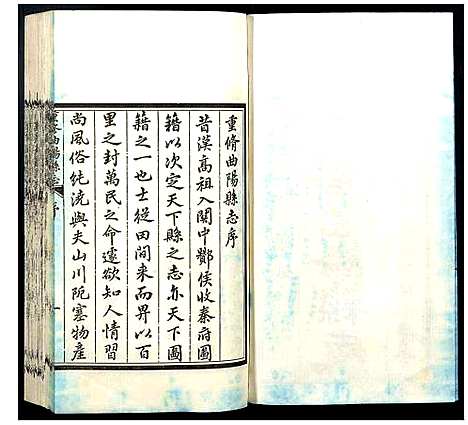 重脩曲陽縣志序
昔漢高祖入關中酇侯收秦府圖
籍以次定天下縣之志亦天下圖
籍之一也士從田間来而畀以百
里之封萬民之命遽欲知人情習
尚風俗純澆與夫山川阨塞物產
重脩曲陽縣志
序
一